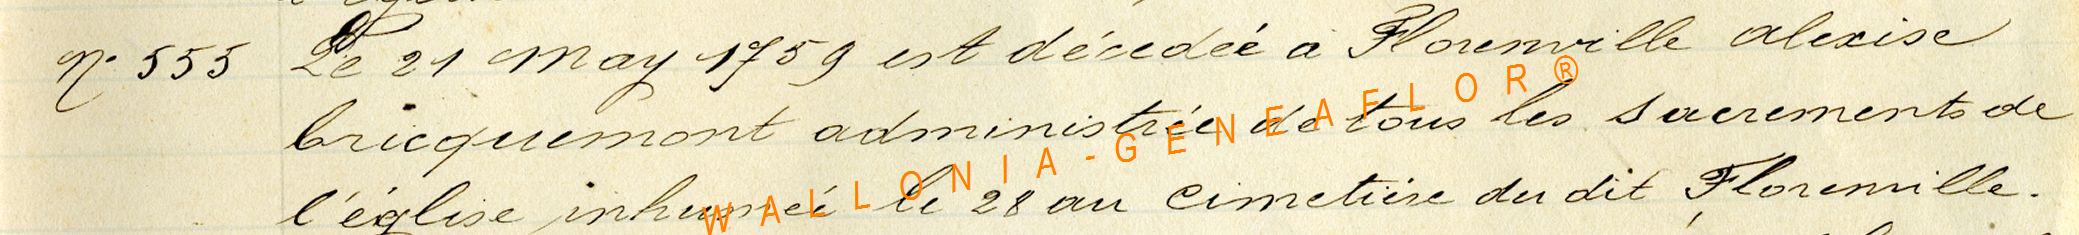 N° 555 Le 21 May 1759 est décédée à Florenville alexise
bricquemont administrée de tous les sacrements de
l'église inhumée le 28 au cimetière du dit Florenville.
WALLONIA-GENEAFLOR®